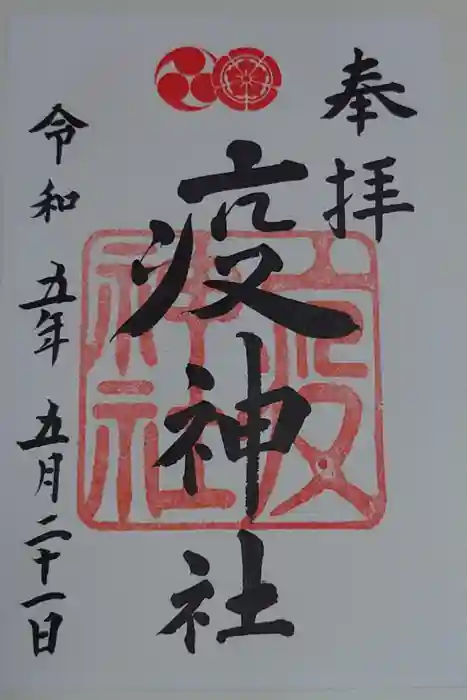 奉拝
疫神社
疫神社
令和五年五月二十一日